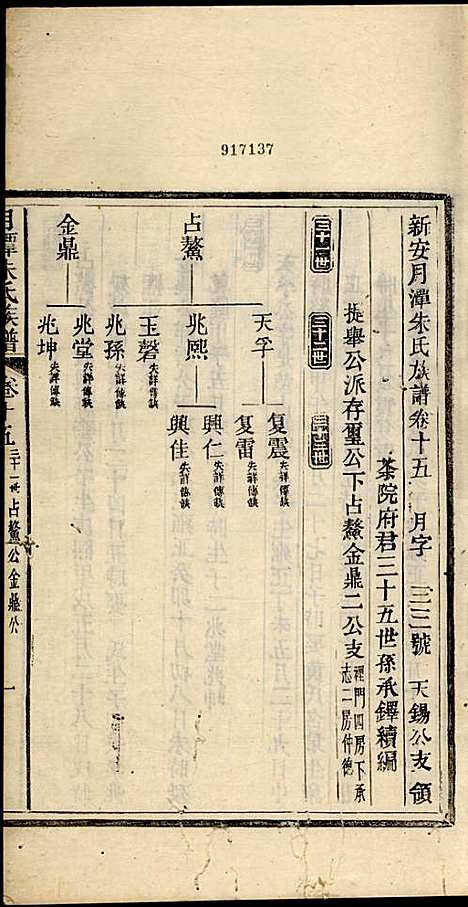 917137
新安月潭朱氏族譜卷十五 月字 三三號 天錫公支領
茶院府君三十五世孫承鐸續編
提舉公派存璽公下占鰲金鼎二公支
裡門四房下承
志二房仲德
三十一世
三十二世
三十三世
占鰲
天孚
复震 失詳傳缺
复雷 失詳傳缺
兆熙
興仁 失詳傳缺
興佳 失詳傳缺
玉磬 失詳傳缺
兆孫 失詳傳缺
金鼎
兆堂 失詳傳缺
兆坤 失詳傳缺
月潭朱氏族譜 卷十五 三十一世占鰲公金鼎公 一